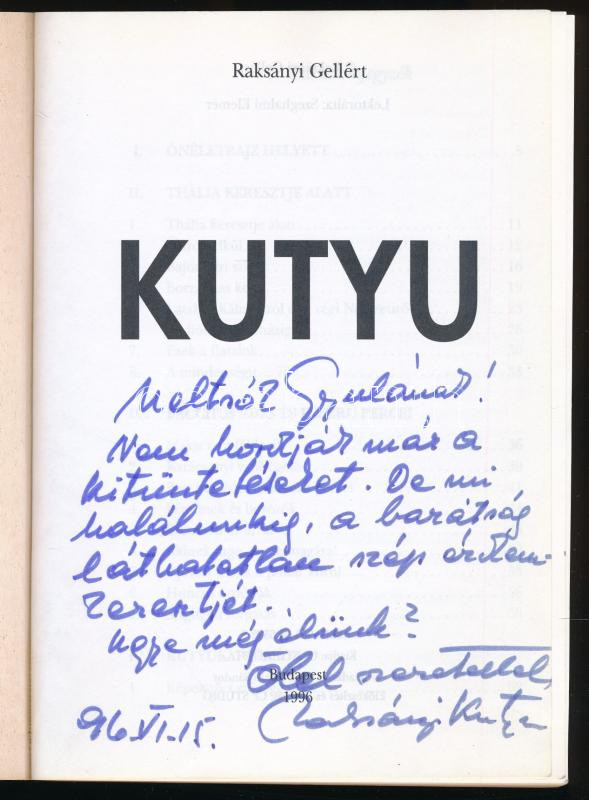 Raksányi Gellért
KUTYU
Gyulának!
Nem hordják már a
kitüntetéseket. De mi
halálunkig, a barátság
láthatatlan szép érdem-
keresztjét.
ugye még élünk?
Ölel szeretettel,
Budapest
1996
96. VI. 15. Raksányi Kutyu